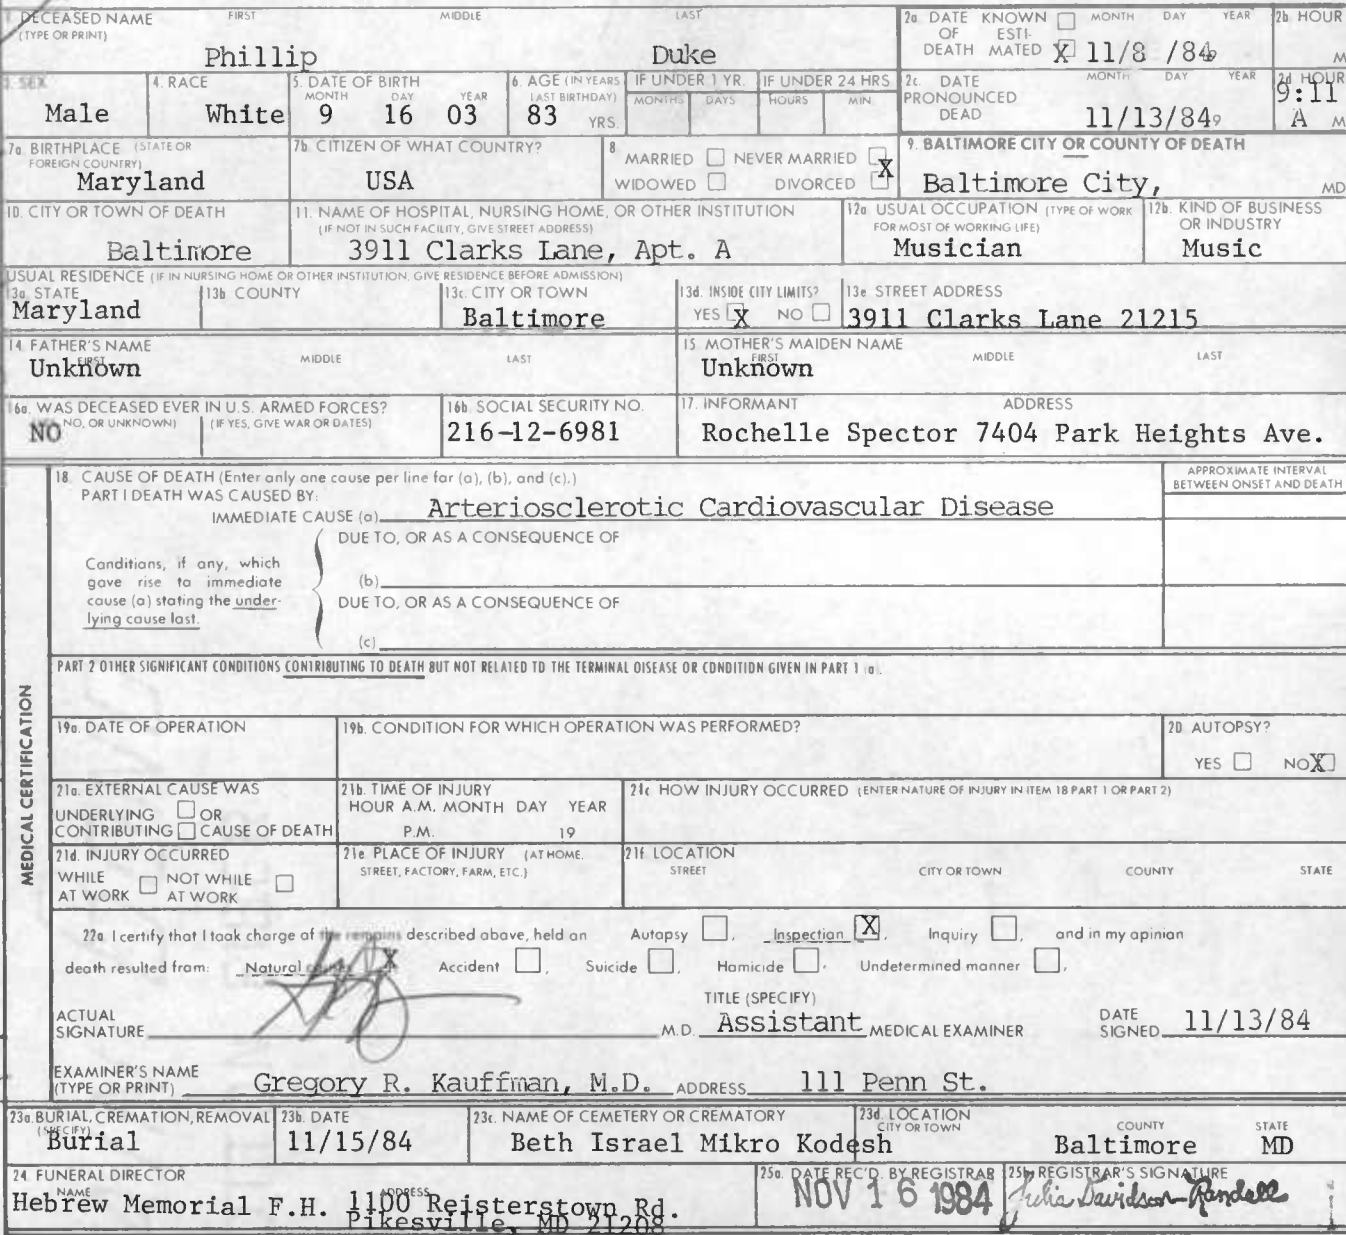 DECEASED NAME FIRST MIDDLE LAST
(TYPE OR PRINT)
Phillip Duke
2a DATE KNOWN OF ESTI- DEATH MATED X MONTH DAY YEAR 11/8 /84
2b HOUR M
3. SEX Male
4. RACE White
5. DATE OF BIRTH MONTH DAY YEAR 9 16 03
6. AGE (IN YEARS LAST BIRTHDAY) 83 YRS.
IF UNDER 1 YR. MONTHS DAYS
IF UNDER 24 HRS HOURS MIN.
2c. DATE PRONOUNCED DEAD MONTH DAY YEAR 11/13/84
2d HOUR 9:11 A M
7a BIRTHPLACE (STATE OR FOREIGN COUNTRY) Maryland
7b CITIZEN OF WHAT COUNTRY? USA
8 MARRIED NEVER MARRIED WIDOWED DIVORCED X
9. BALTIMORE CITY OR COUNTY OF DEATH Baltimore City, MD
10. CITY OR TOWN OF DEATH Baltimore
11. NAME OF HOSPITAL, NURSING HOME, OR OTHER INSTITUTION
(IF NOT IN SUCH FACILITY, GIVE STREET ADDRESS)
3911 Clarks Lane, Apt. A
12a USUAL OCCUPATION (TYPE OF WORK FOR MOST OF WORKING LIFE) Musician
12b. KIND OF BUSINESS OR INDUSTRY Music
USUAL RESIDENCE (IF IN NURSING HOME OR OTHER INSTITUTION, GIVE RESIDENCE BEFORE ADMISSION)
13a. STATE Maryland
13b COUNTY
13c. CITY OR TOWN Baltimore
13d. INSIDE CITY LIMITS? YES X NO
13e STREET ADDRESS 3911 Clarks Lane 21215
14 FATHER'S NAME FIRST MIDDLE LAST
Unknown
15 MOTHER'S MAIDEN NAME FIRST MIDDLE LAST
Unknown
16a. WAS DECEASED EVER IN U.S. ARMED FORCES?
NO NO, OR UNKNOWN) (IF YES, GIVE WAR OR DATES)
16b SOCIAL SECURITY NO. 216-12-6981
17. INFORMANT ADDRESS
Rochelle Spector 7404 Park Heights Ave.
MEDICAL CERTIFICATION
18. CAUSE OF DEATH (Enter only one cause per line for (a), (b), and (c).)
APPROXIMATE INTERVAL BETWEEN ONSET AND DEATH
PART I DEATH WAS CAUSED BY:
IMMEDIATE CAUSE (a) Arteriosclerotic Cardiovascular Disease
DUE TO, OR AS A CONSEQUENCE OF
Conditions, if any, which gave rise to immediate cause (a) stating the under-lying cause last.
(b)
DUE TO, OR AS A CONSEQUENCE OF
(c)
PART 2 OTHER SIGNIFICANT CONDITIONS CONTRIBUTING TO DEATH BUT NOT RELATED TO THE TERMINAL DISEASE OR CONDITION GIVEN IN PART 1 (a).
19a. DATE OF OPERATION
19b. CONDITION FOR WHICH OPERATION WAS PERFORMED?
20 AUTOPSY? YES NO X
21a. EXTERNAL CAUSE WAS UNDERLYING OR CONTRIBUTING CAUSE OF DEATH
21b. TIME OF INJURY
HOUR A.M. MONTH DAY YEAR
P.M. 19
21c HOW INJURY OCCURRED (ENTER NATURE OF INJURY IN ITEM 18 PART 1 OR PART 2)
21d. INJURY OCCURRED WHILE AT WORK NOT WHILE AT WORK
21e. PLACE OF INJURY (AT HOME, STREET, FACTORY, FARM, ETC.)
21f. LOCATION STREET CITY OR TOWN COUNTY STATE
22a. I certify that I took charge of the remains described above, held an Autopsy , Inspection X , Inquiry , and in my opinion
death resulted from: Natural causes X Accident , Suicide , Homicide , Undetermined manner ,
ACTUAL SIGNATURE M.D.
TITLE (SPECIFY) Assistant MEDICAL EXAMINER
DATE SIGNED 11/13/84
EXAMINER'S NAME (TYPE OR PRINT) Gregory R. Kauffman, M.D. ADDRESS 111 Penn St.
23a. BURIAL, CREMATION, REMOVAL (SPECIFY) Burial
23b. DATE 11/15/84
23c. NAME OF CEMETERY OR CREMATORY Beth Israel Mikro Kodesh
23d. LOCATION CITY OR TOWN COUNTY STATE
Baltimore MD
24 FUNERAL DIRECTOR NAME ADDRESS
Hebrew Memorial F.H. 1100 Reisterstown Rd.
Pikesville, MD 21208
25a. DATE REC'D. BY REGISTRAR NOV 16 1984
25b REGISTRAR'S SIGNATURE Julia Davidson-Randell